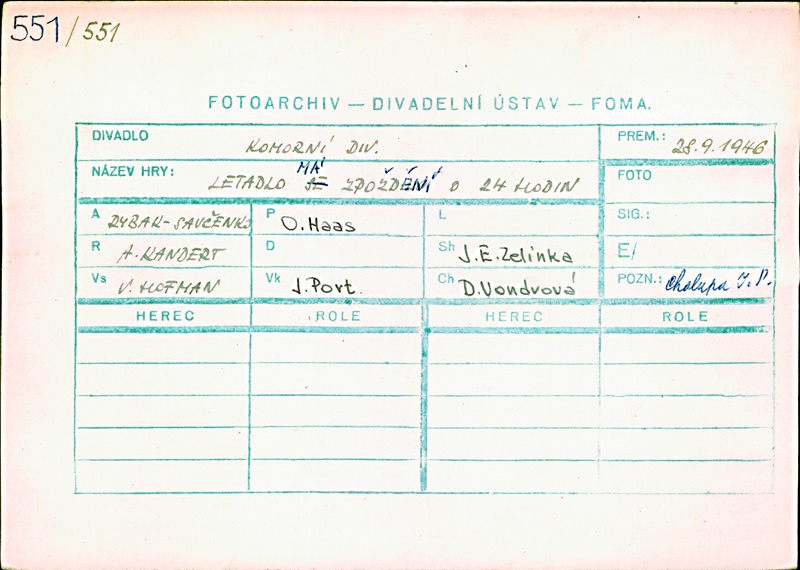 551/551
FOTOARCHIV — DIVADELNÍ ÚSTAV — FOMA.
DIVADLO KOMORNÍ DIV. PREM.: 28.9.1946
NÁZEV HRY: LETADLO SE MÁ ZPOŽDĚNÍ O 24 HODIN FOTO
A RYBAK-SAVČENKO P O. Haas L SIG.:
R A. KANDERT D Sh J.E. Zelinka E/
Vs V. HOFMAN Vk J. Port. Ch D. Vondrová POZN.: Chalupa J.P.
HEREC ROLE HEREC ROLE